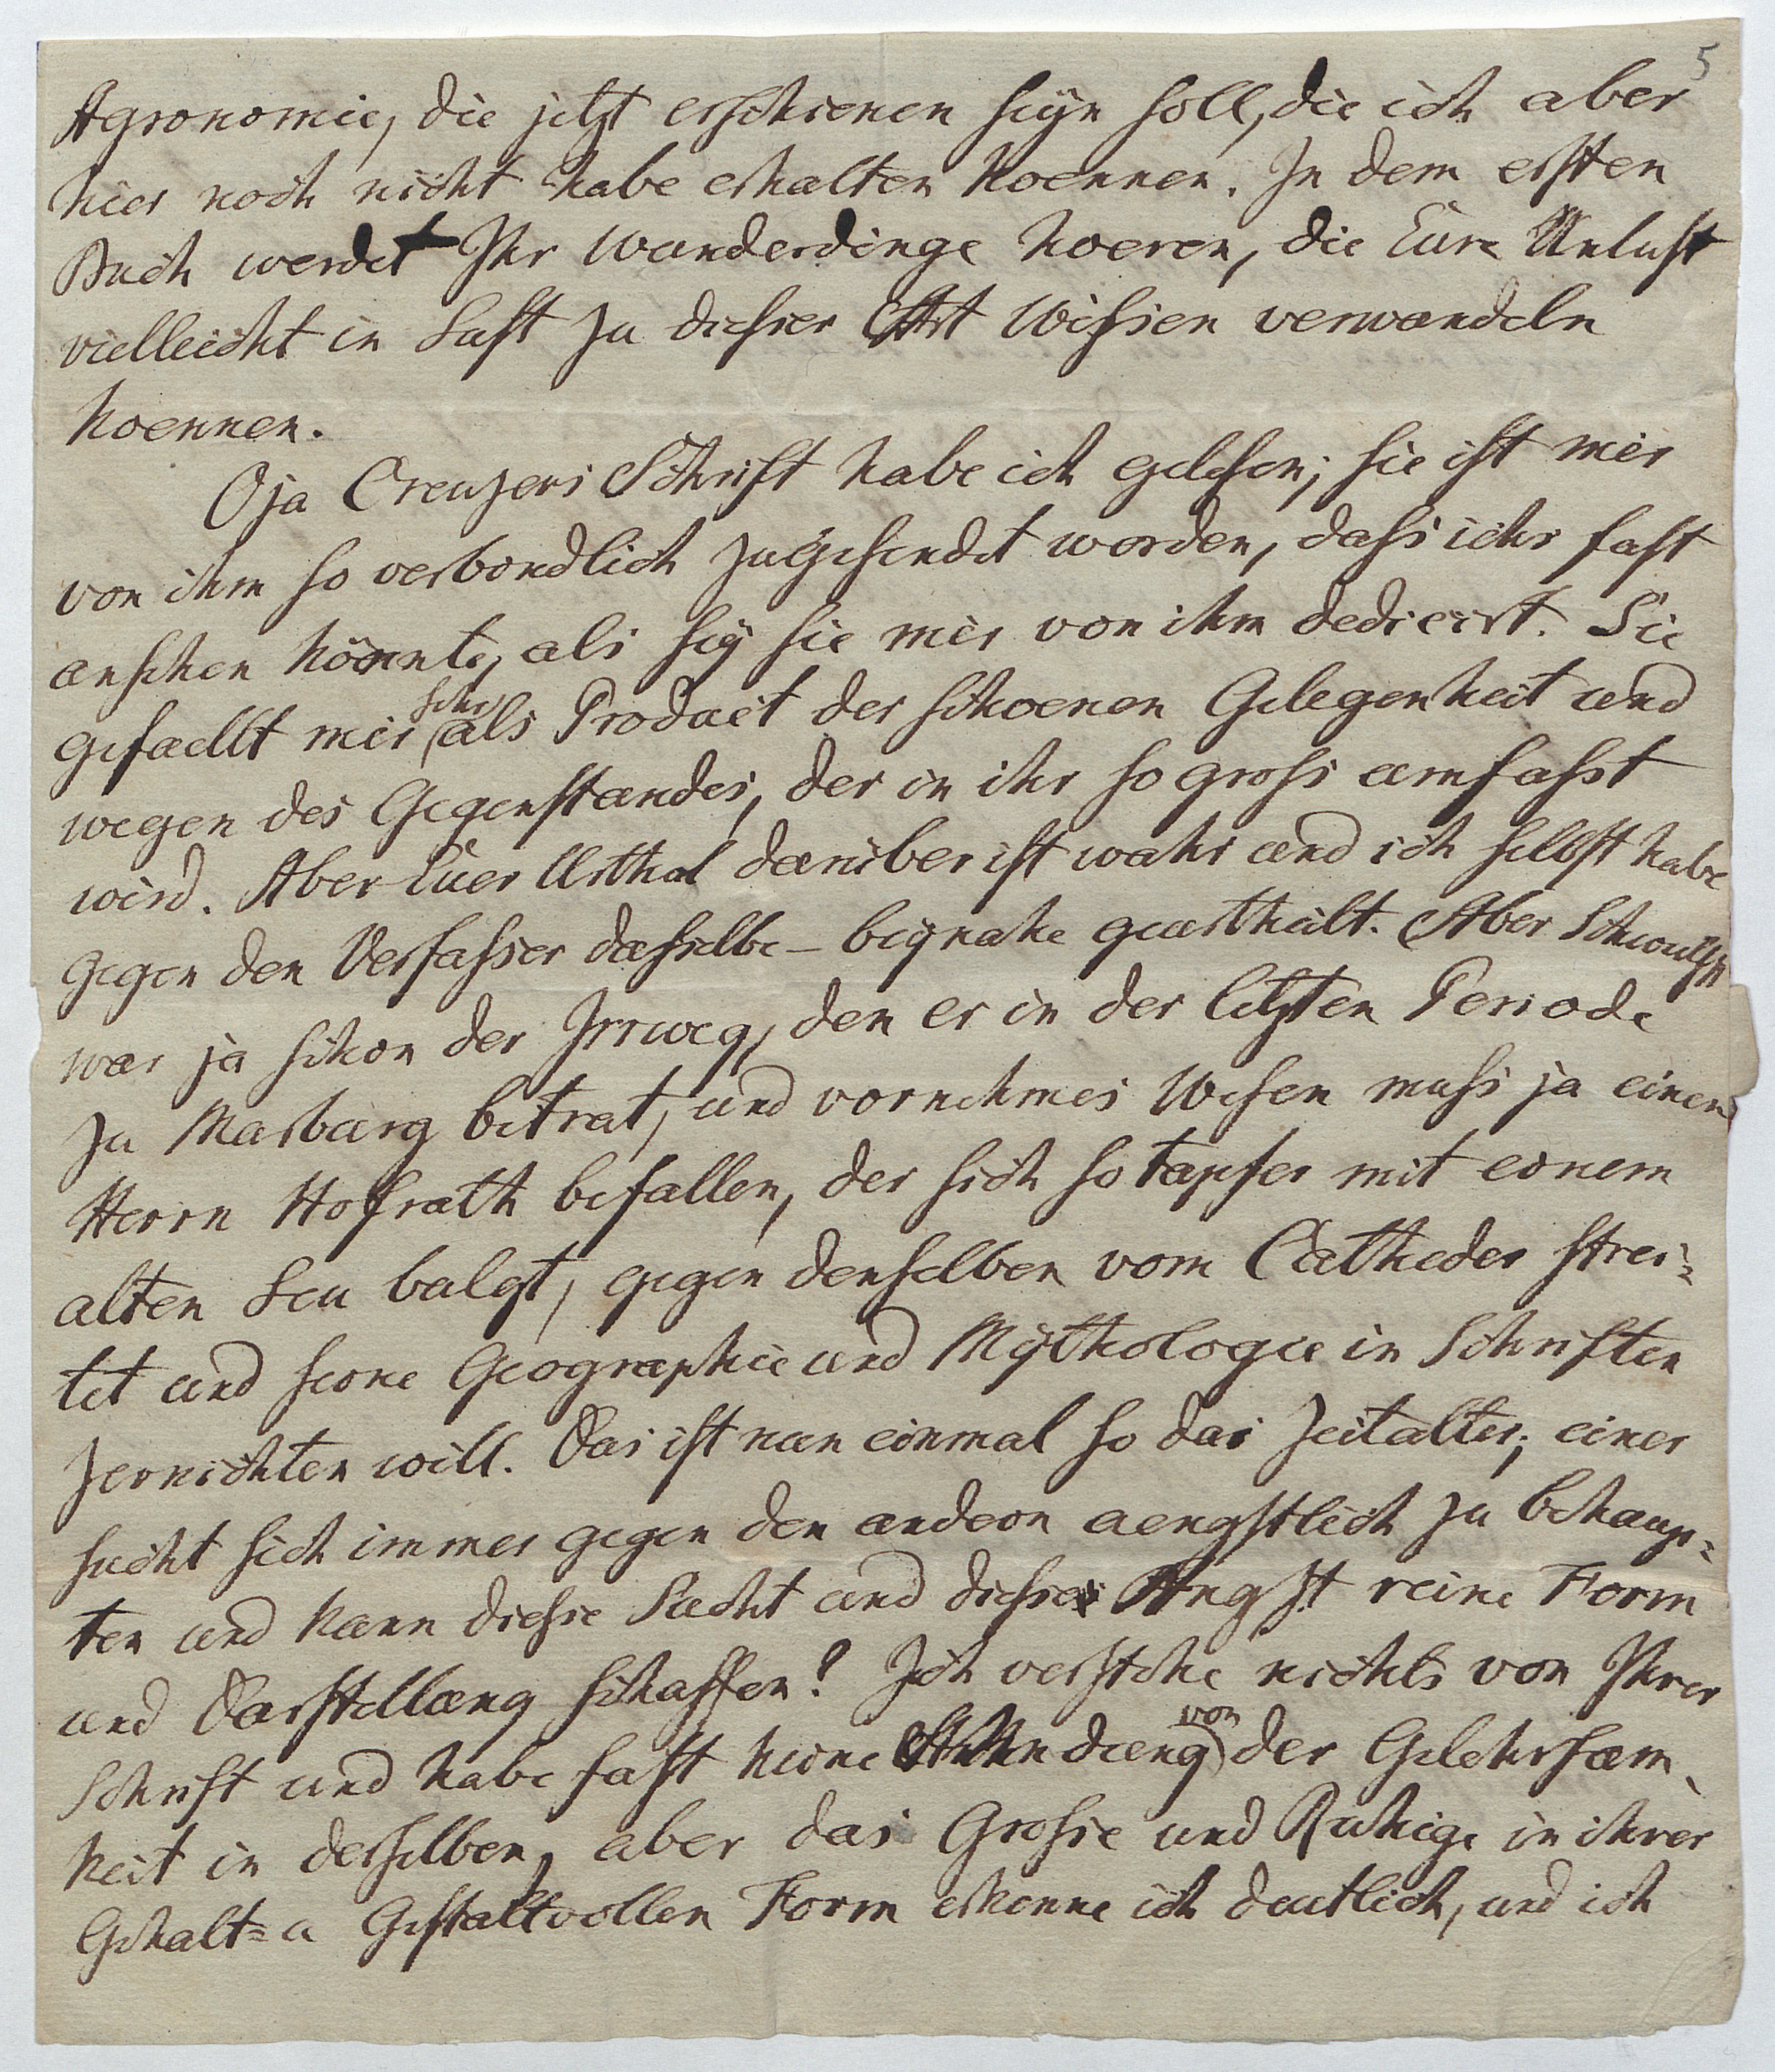 5
Agronomie, die jetzt erschienen seÿn soll, die ich aber
hier noch nicht habe erhalten koennen. In dem ersten
Buch werdet Ihr Wunderdinge hoeren, die Eure Unlust
vielleicht in Lust zu diesser Art Wissen verwandeln
koennen.
O ja Creuzers Schrift habe ich gelesen; sie ist mir
von ihm so verbindlich zugesendet worden, dass ichs fast
ansehen könnte, als seÿ sie mir von ihm dedicirt. Sie
gefaellt mir sehr als Product der schoenen Gelegenheit und
wegen des Gegenstandes, der in ihr so gross umfasst
wird. Aber Euer Urthal darüber ist wahr und ich selbst habe
gegen den Verfasser dasselbe – beÿnahe geurtheilt. Aber Schwulst
war ja schon der Irrweg, den er in der letzten Periode
zu Marburg betrat, und vornehmes Wesen muss ja einen
Herrn Hofrath befallen, der sich so tapfer mit einem
alten Leu balgt, gegen denselben vom Catheder strei=
tet und seine Geographie und Mÿthologie in Schriften
zernichten will. Das ist nun einmal so das Zeitalter; einer
sucht sich immer gegen den andern aengstlich zu behaup=
ten und kann diesse Sucht und diesse Angst reine Form
und Darstellung schaffen? Ich verstehe nichts von Ihrer
Schrift und habe fast keine Ahndung von der Gelehrsam
keit in derselben, aber das Grosse und Ruhige in ihrer
Gehalt= u Gestaltvollen Form erkenne ich deutlich, und ich